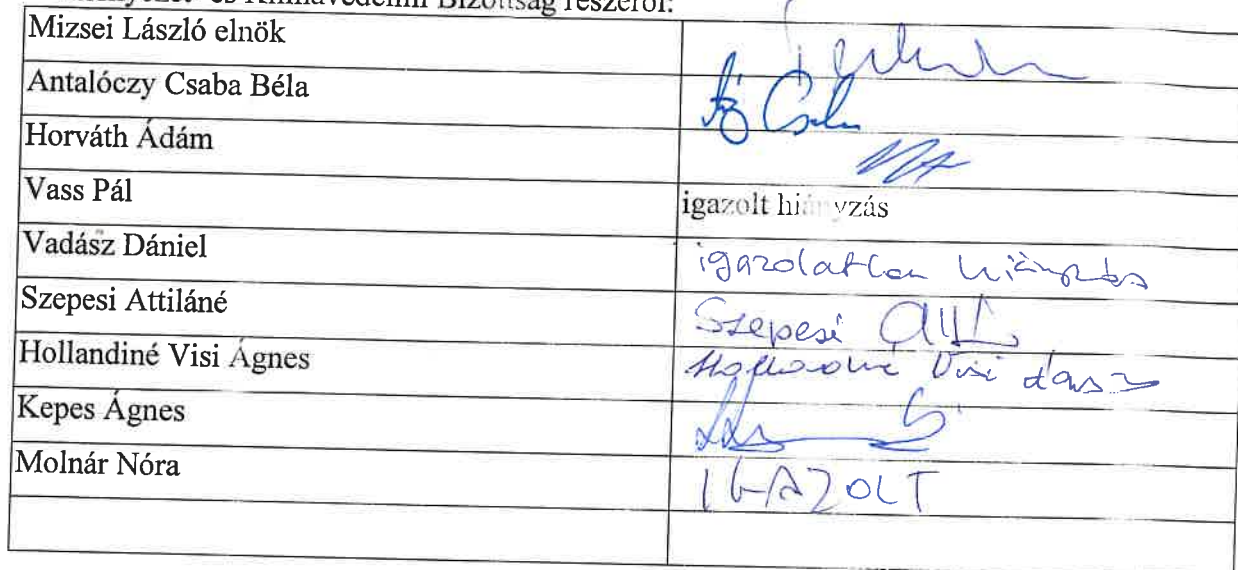 és Klímavédelmi Bizottság részéről:
Mizsei László elnök
Antalóczy Csaba Béla
Horváth Ádám
Vass Pál igazolt hiányzás
Vadász Dániel igazolatlan hiányzás
Szepesi Attiláné Szepesi
Hollandiné Visi Ágnes Visi
Kepes Ágnes
Molnár Nóra IGAZOLT